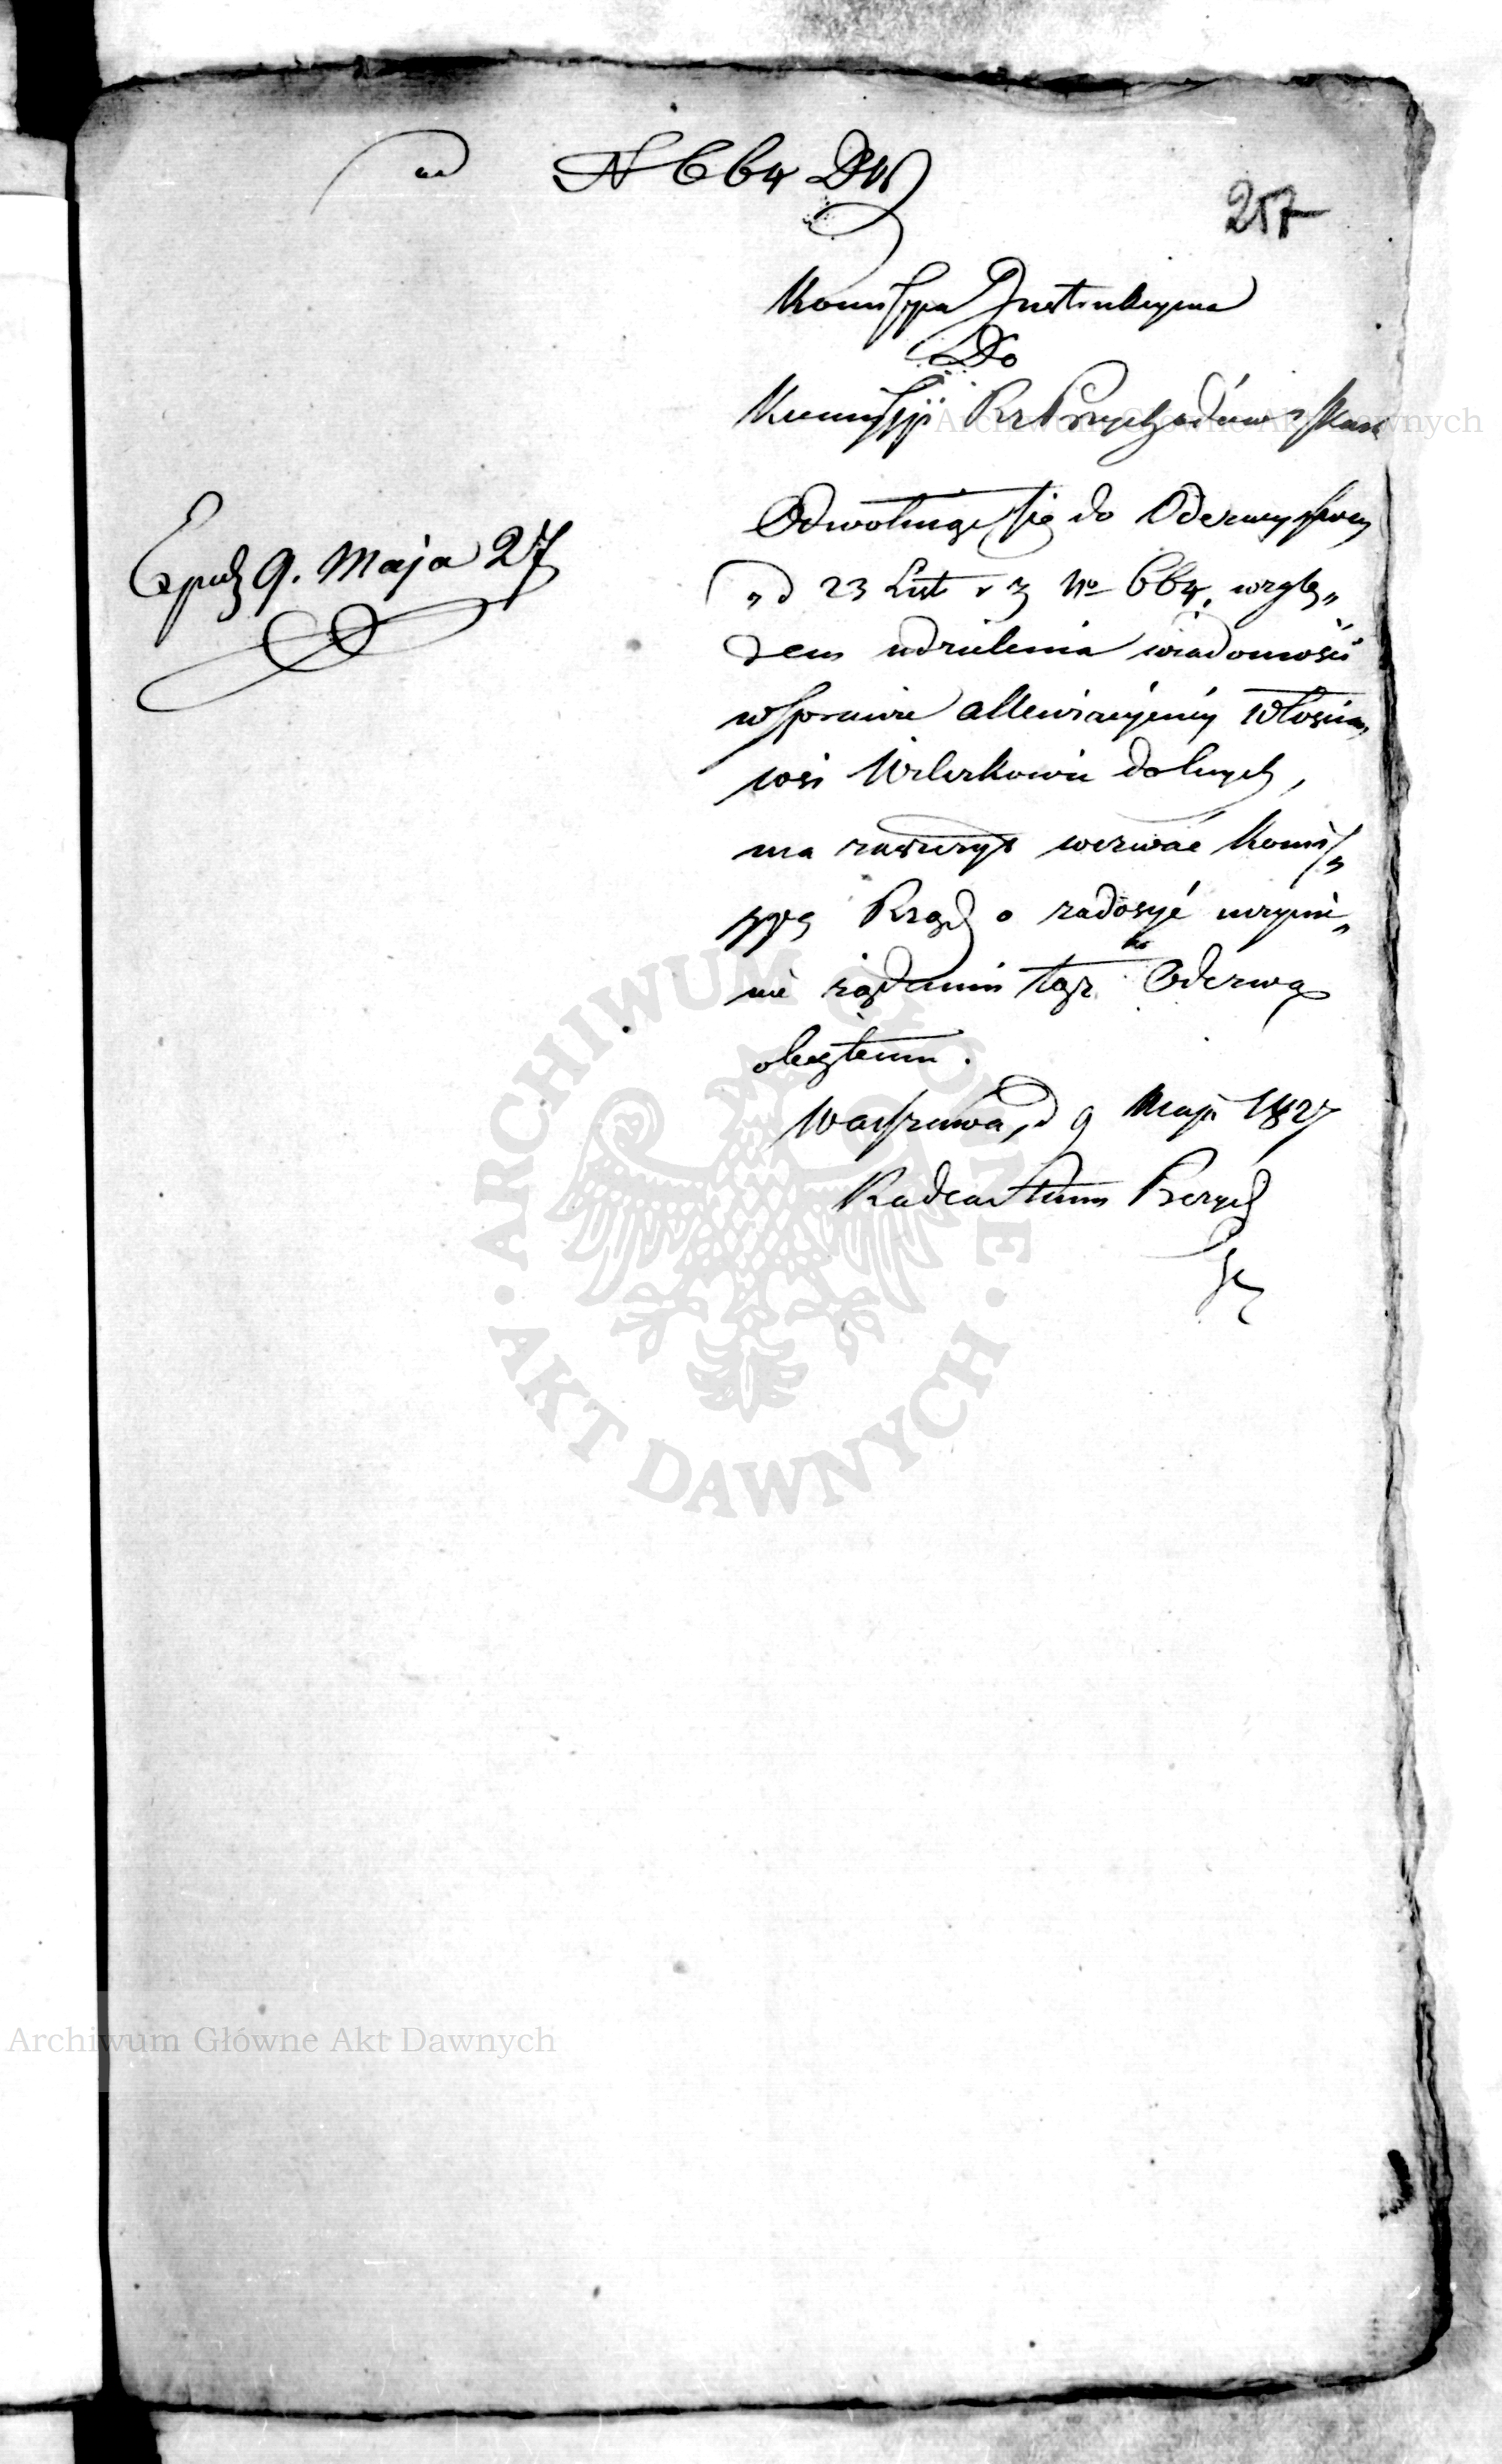 ad N 664 DW
257
Kommissya Instrukcyjna
Do
Kommissyi Rz Przychodów i Skar
Odwołując się do Odezwy swey
Exped 9. Maja 27
od 23 List r z No 664, wzglę„
dem udzielenia wiadomości
w sprawie allewiacyjnéy włościan
wsi Wilczkowic dolnych,
ma zaszczyt wezwać Kommis„
syą Rząd o zadosyć uczynie„
nie żądaniu tąż Odezwą
objętemu.
Warszawa, d 9 Maja 1827
Radca Stanu Prezyd
Archiwum Główne Akt Dawnych
ARCHIWUM GŁÓWNE AKT DAWNYCH
Archiwum Główne Akt Dawnych